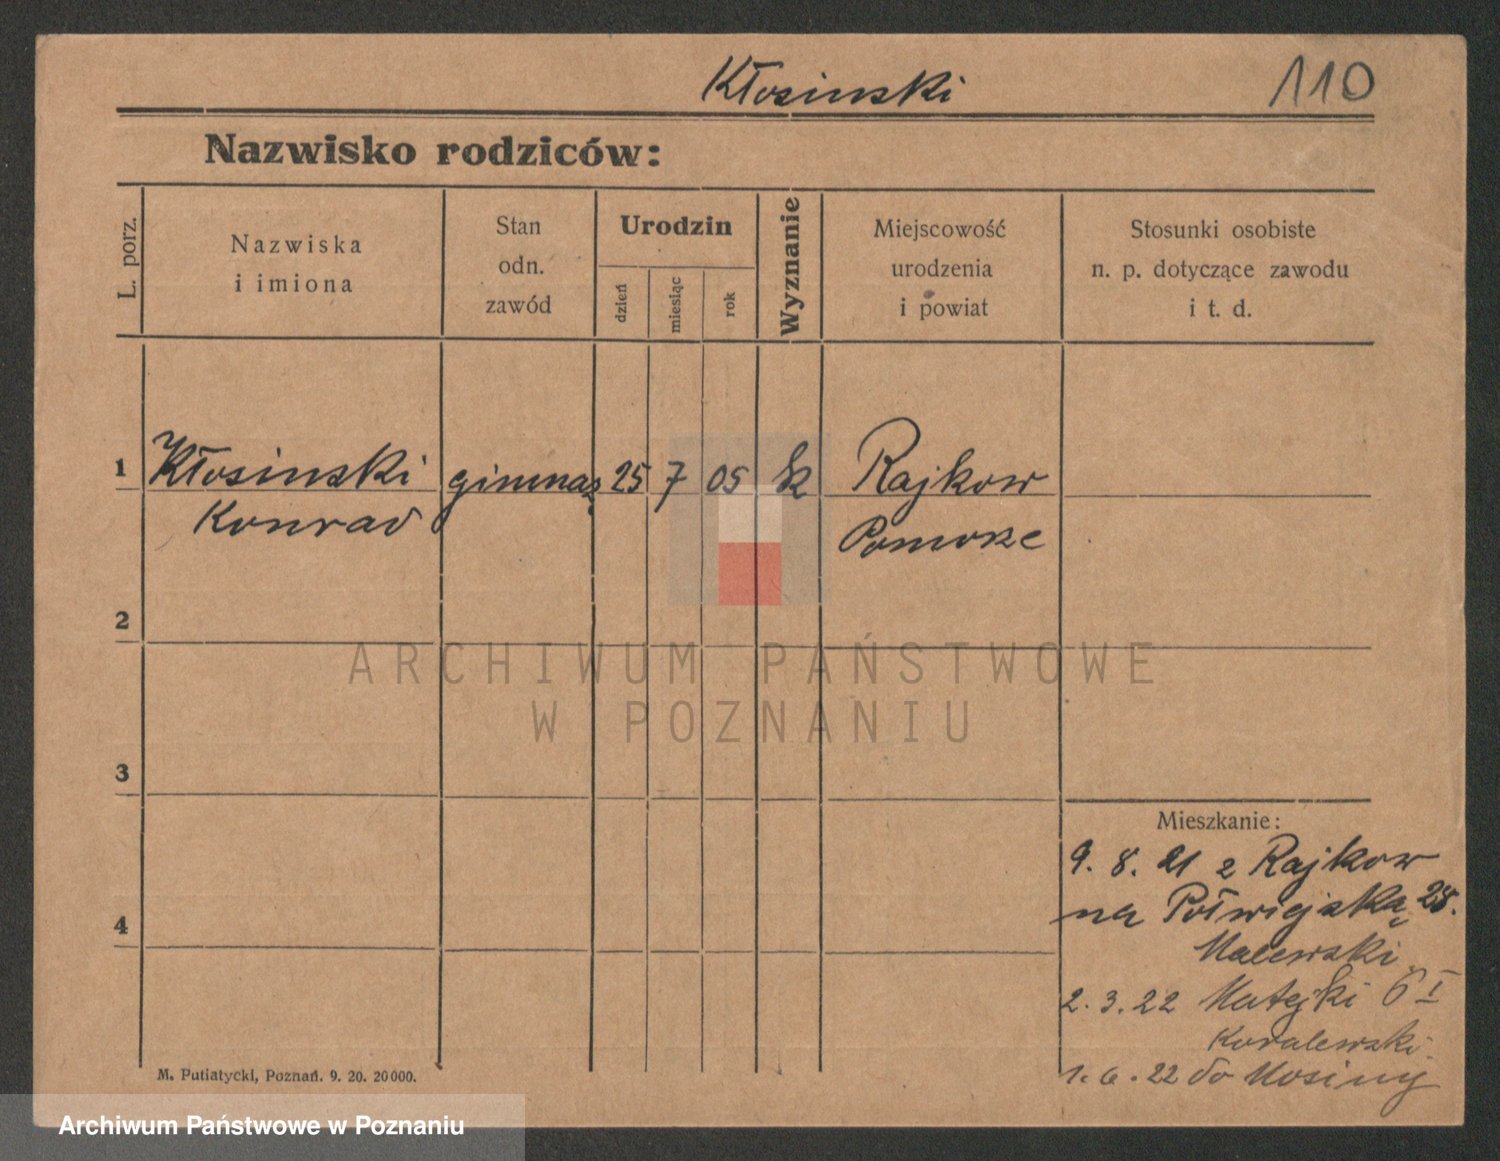 Kłosinski
110
Nazwisko rodziców:
L. porz.
Nazwiska
i imiona
Stan
odn.
zawód
Urodzin
dzień
miesiąc
rok
Wyznanie
Miejscowość
urodzenia
i powiat
Stosunki osobiste
n. p. dotyczące zawodu
i t. d.
1
Kłosinski gimnaz 25 7 05 k Rajkow
Konrad Pomorze
2
ARCHIWUM PAŃSTWOWE
W POZNANIU
3
Mieszkanie:
9. 8. 21 z Rajkow
na Półwiejską 28.
Malewski
4
2. 3. 22 Matejki 6 I
Kowalewski
1. 6. 22 do Mosiny
M. Putiatycki, Poznań. 9. 20. 20000.
Archiwum Państwowe w Poznaniu